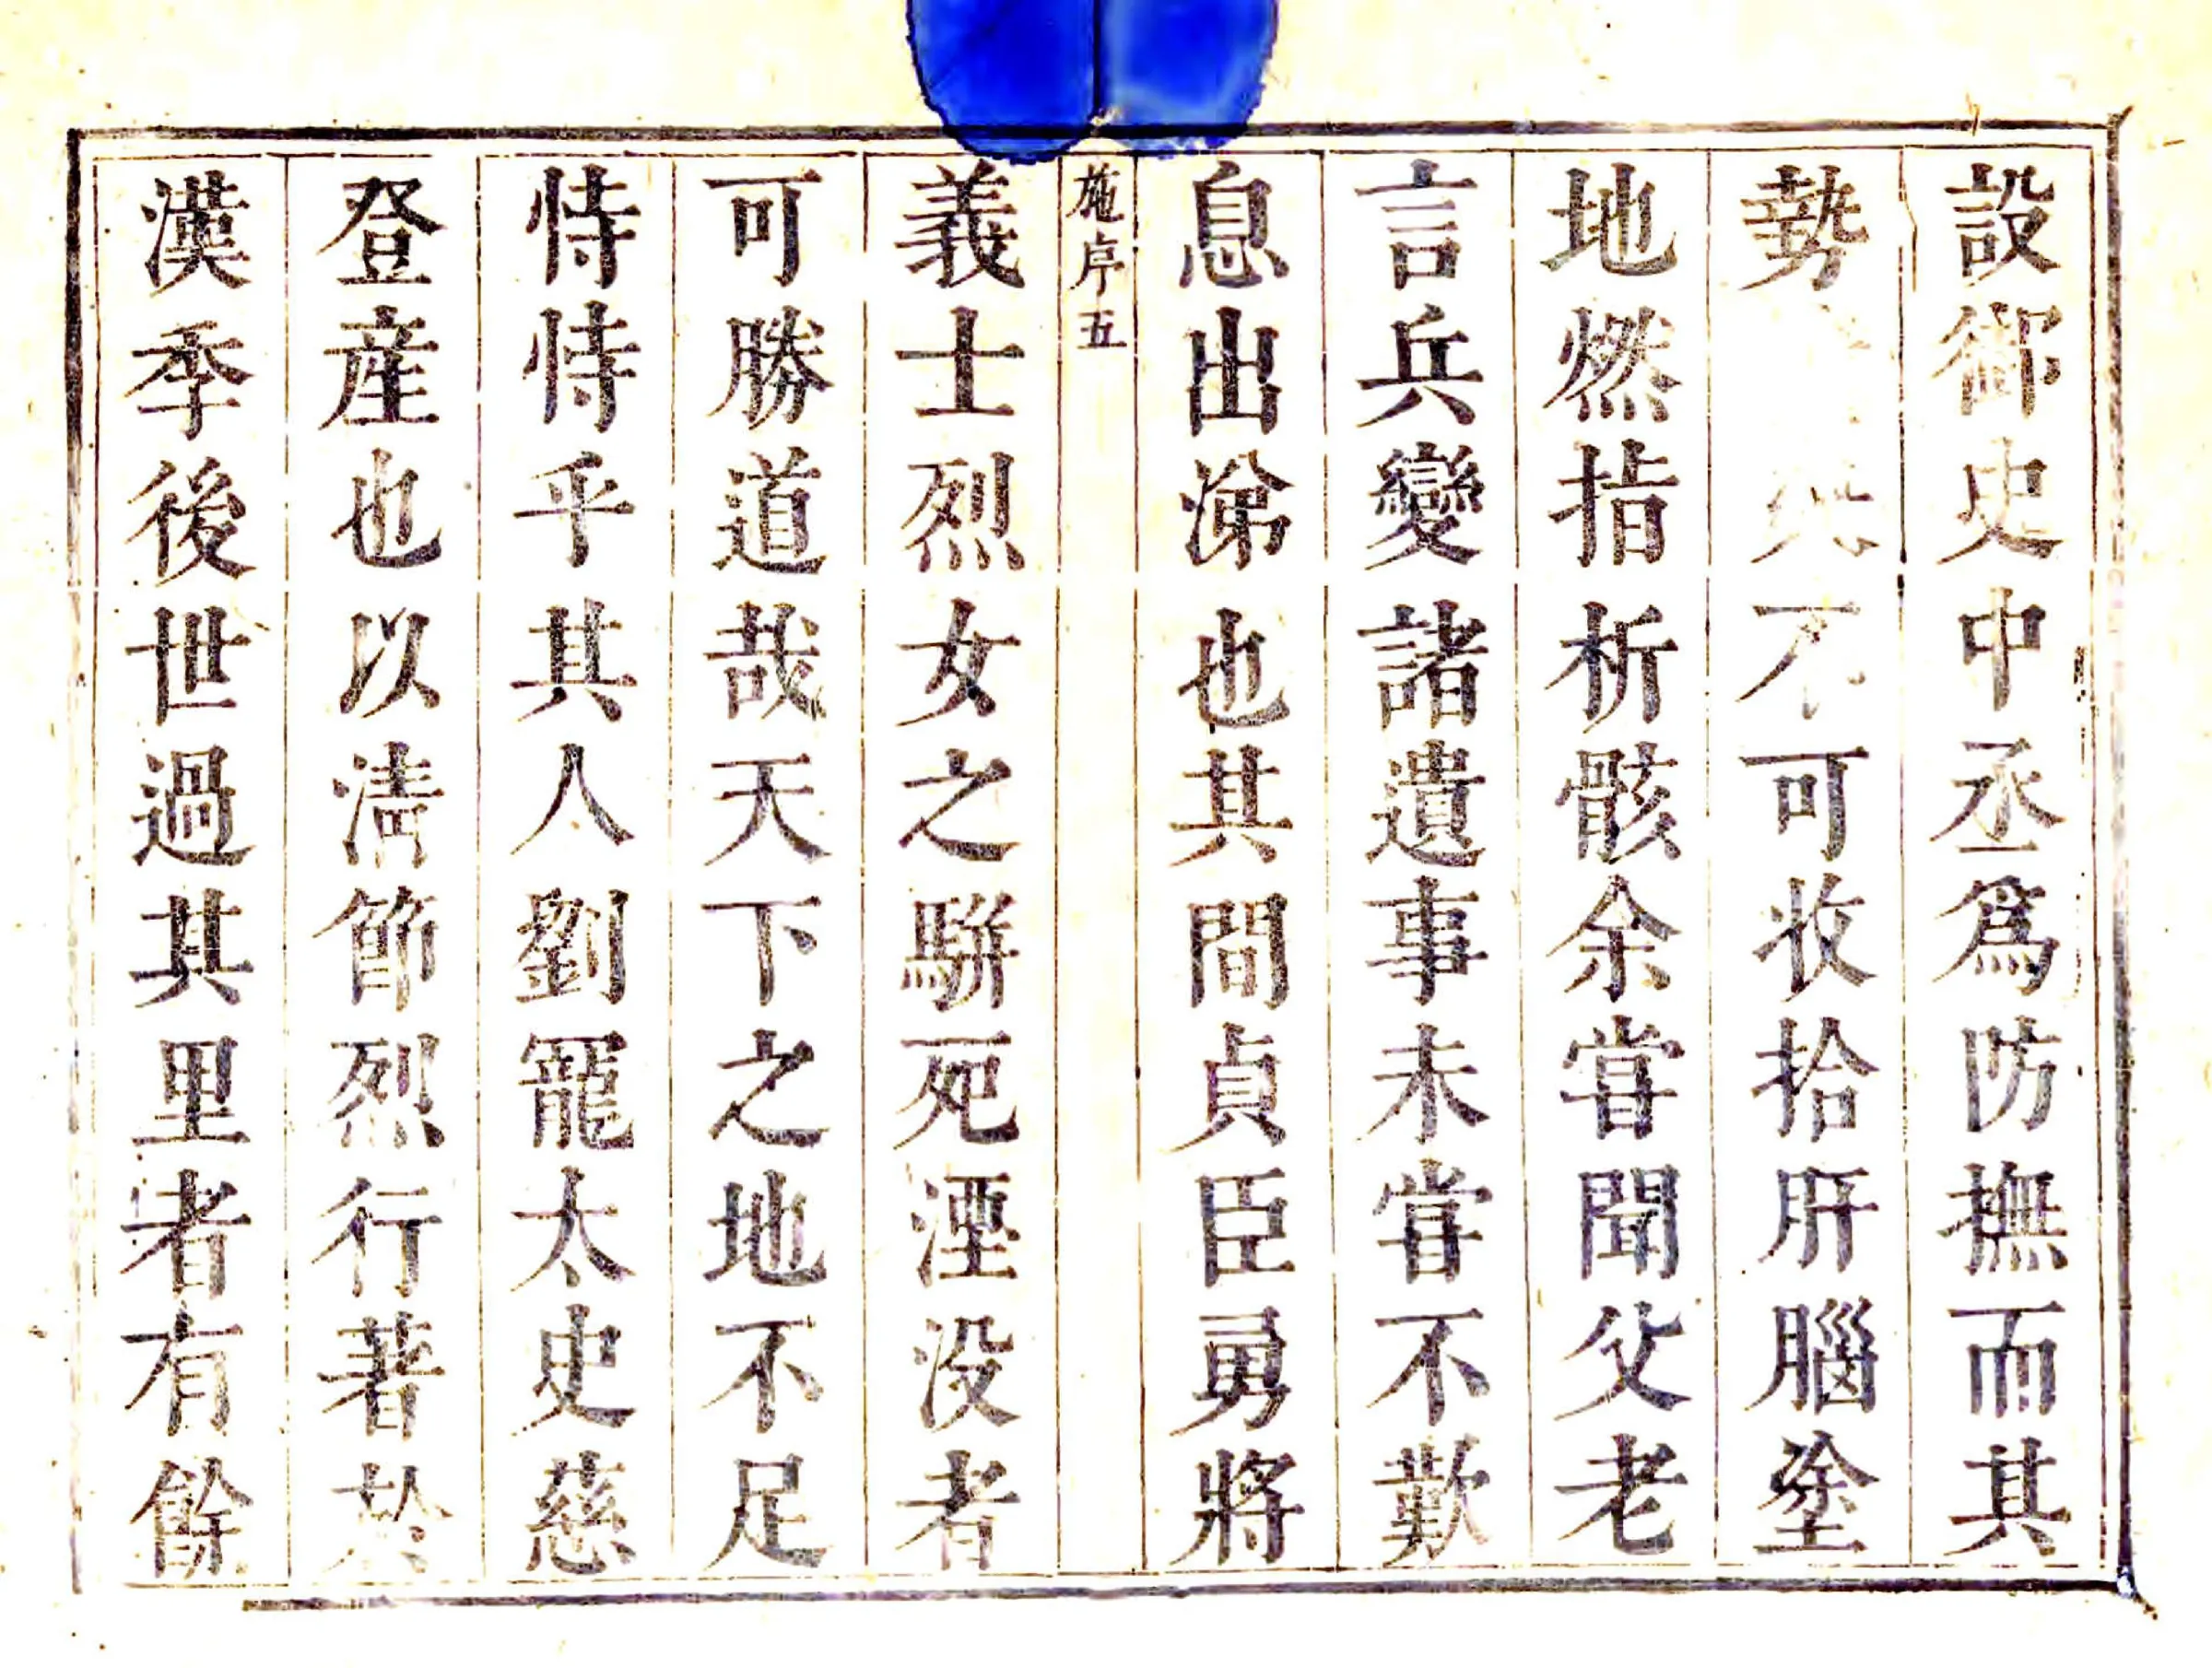 設御史中丞爲防撫而其
勢可收拾肝腦塗
地燃指析骸余甞聞父老
言兵變諸遺事未甞不歎
息出涕也其間貞臣勇將
施序五
義士烈女之駢死湮没者
可勝道哉天下之地不足
恃恃乎其人劉寵太史慈
登産也以清節烈行著於
漢季後世過其里者有餘